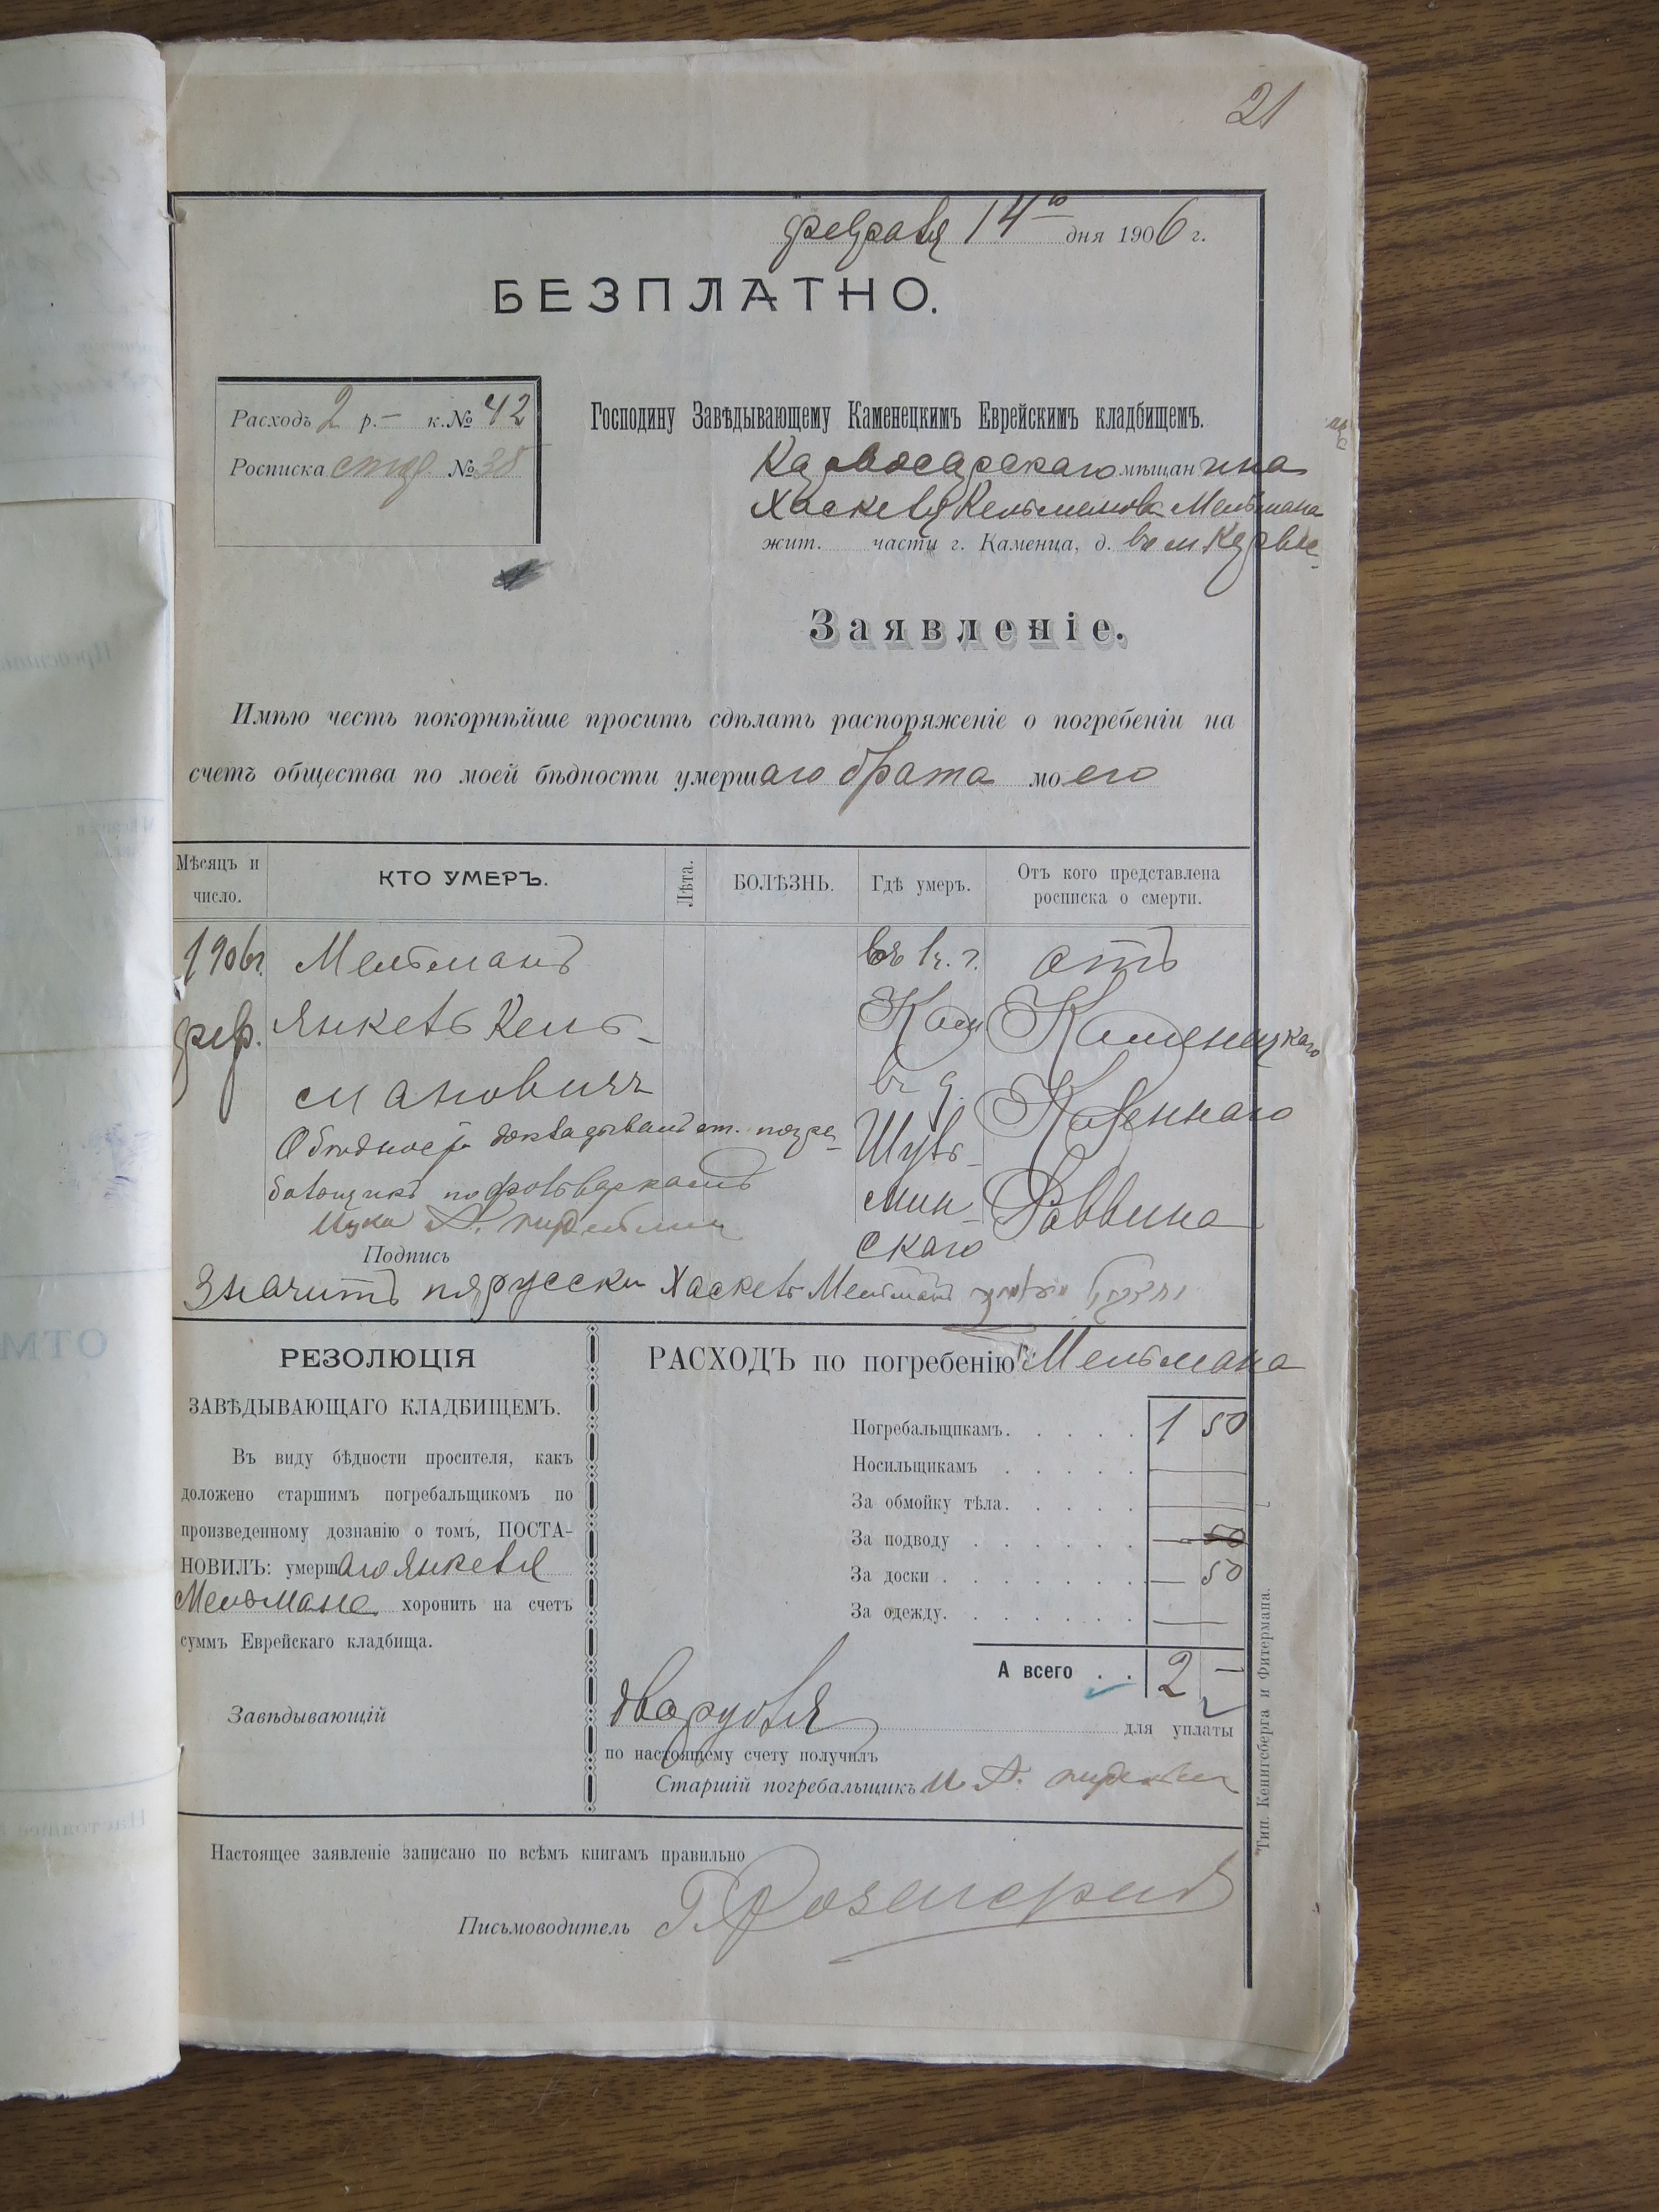 21
февраля 14го дня 1906 г.
БЕЗПЛАТНО.
Расходъ 2 р. — к. № 42
Росписка стар. № 38
Господину Завѣдывающему Каменецкимъ Еврейскимъ кладбищемъ.
мѣщанина
Хаскеля Кельманова Мельмана
жит. части г. Каменца, д. въ м.
Заявленіе.
Имѣю честь покорнѣйше просить сдѣлать распоряженіе о погребеніи на
счетъ общества по моей бѣдности умершаго брата моего
Мѣсяцъ и число.
КТО УМЕРЪ.
Лѣта.
БОЛѢЗНЬ.
Гдѣ умеръ.
Отъ кого представлена росписка о смерти.
1906 г.
фев.
Мельманъ
Янкель Кель-
мановичъ
О бѣдности докладывалъ ст. погре-
бальщикъ по фольваркамъ
въ г.
Кам
въ д.
Шуль-
мин-
скаго
отъ
Каменецкаго
Казеннаго
Раввина
Подпись
Значитъ по русски Хаскель Мельманъ
РЕЗОЛЮЦІЯ
ЗАВѢДЫВАЮЩАГО КЛАДБИЩЕМЪ.
Въ виду бѣдности просителя, какъ
доложено старшимъ погребальщикомъ по
произведенному дознанію о томъ, ПОСТА-
НОВИЛЪ: умершаго Янкеля
Мельмана хоронить на счетъ
суммъ Еврейскаго кладбища.
Завѣдывающій
РАСХОДЪ по погребенію Мельмана
Погребальщикамъ. 1 50
Носильщикамъ —
За обмойку тѣла. —
За подводу — 50
За доски — 50
За одежду. —
А всего 2 —
два рубля для уплаты
по настоящему счету получилъ
Старшій погребальщикъ
Настоящее заявленіе записано по всѣмъ книгамъ правильно
Письмоводитель
Тип. Кенигсберга и Фитермана.